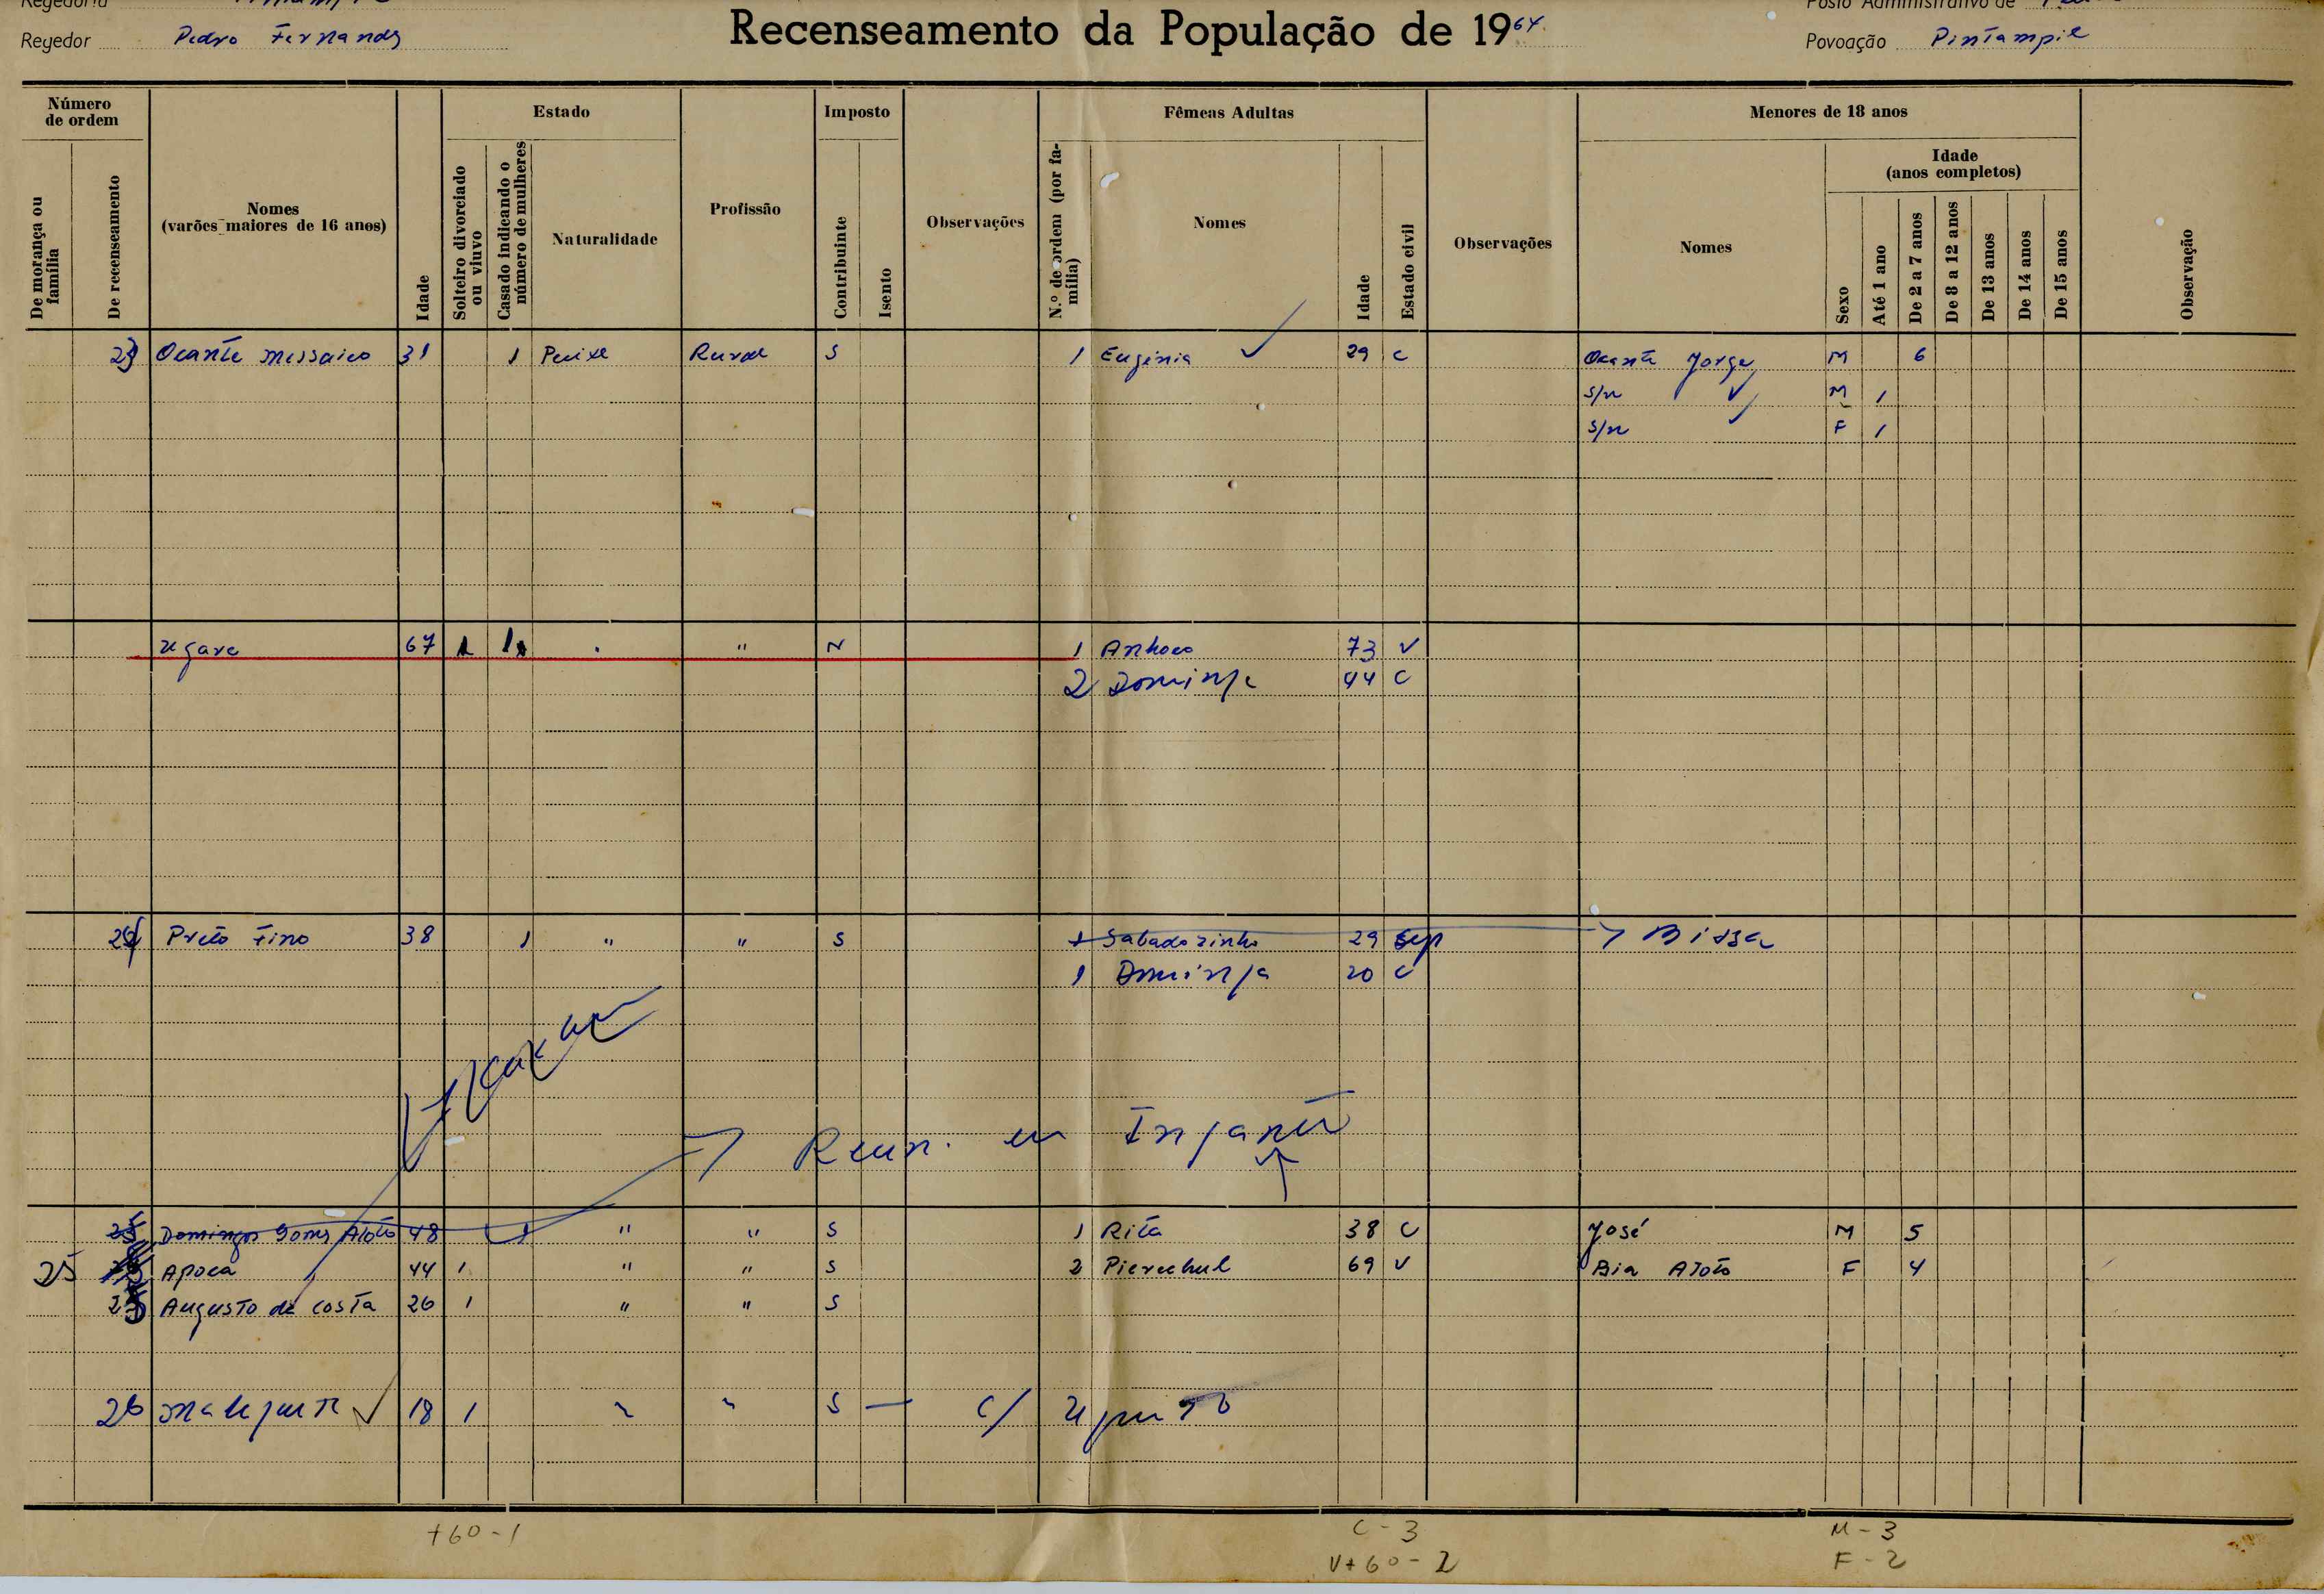 Regedoria
Posto Administrativo de
Regedor Pedro Fernandes
Recenseamento da População de 1964
Povoação Pintampil
Número de ordem
De morança ou família
De recenseamento
Nomes
(varões maiores de 16 anos)
Idade
Estado
Solteiro divorciado ou viuvo
Casado indicando o número de mulheres
Naturalidade
Profissão
Imposto
Contribuinte
Isento
Observações
Fêmeas Adultas
N.º de ordem (por família)
Nomes
Idade
Estado civil
Observações
Menores de 18 anos
Nomes
Idade
(anos completos)
Sexo
Até 1 ano
De 2 a 7 anos
De 8 a 12 anos
De 13 anos
De 14 anos
De 15 anos
Observação
23 Ocante Messaico 31 1 Peixe Rural S 1 Eugénia 29 C Ocante Jorge M 6
s/n M 1
s/n F 1
Ugave 67 " N 1 Anhoco 73 V
2 Dominga 44 C
24 Preto Fino 38 1 " " S 1 Sabadozinho 29 Sep → Bissa
1 Dominga 20 C
→ Recen. em
25 Domingos Gomes Atoto 48 1 " " S 1 Rita 38 C José M 5
25 Apoca 44 1 " " S 2 Pierechul 69 V Bia Atoto F 4
25 Augusto da Costa 26 1 " " S
26 18 1 " " S — c/
+60-1
C-3
M-3
V+60-2
F-2